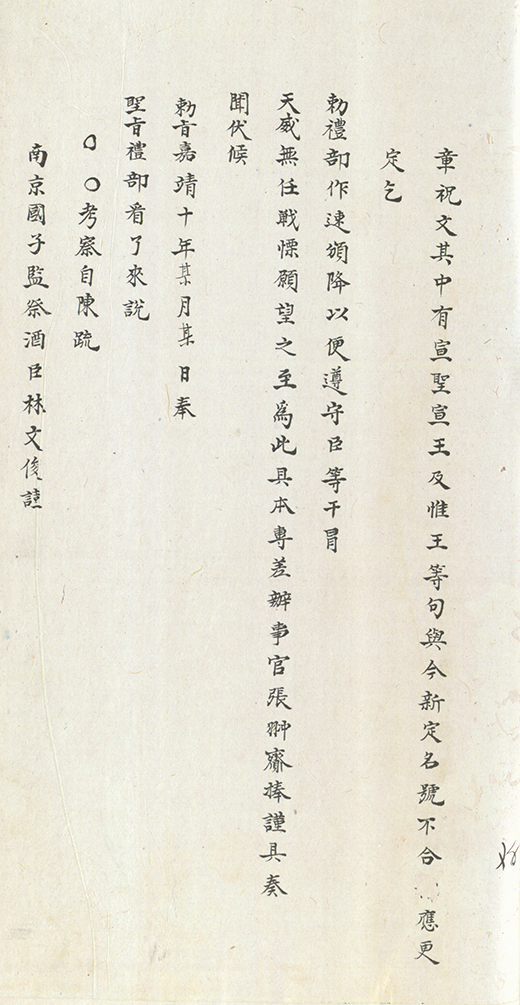 章祝文其中有宣聖宣王及惟王等句與今新定名號不合應更
定乞
勅禮部作速頒降以便遵守臣等干冒
天威無任戰慄願望之至爲此具本專差辦事官張翀齎捧謹具奏
聞伏候
勅旨嘉靖十年某月某日奉
聖旨禮部看了來說
〇〇考察自陳疏
南京國子監祭酒臣林文俊謹